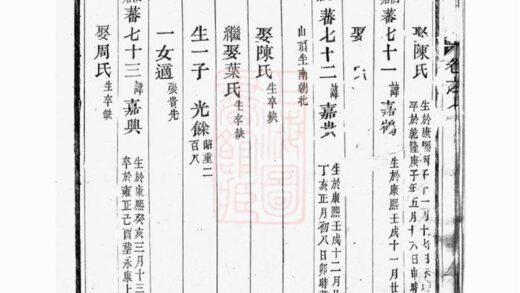 娶陳氏
生於康熙丙子十一月十七日
卒於乾隆庚子年五月十六日申時
蕃七十一 諱 嘉鶴
生於康熙壬戌十一月廿
娶
蕃七十二 諱 嘉貴
生於康熙壬戌十二月廿
丁亥正月初八日卯時
山頂坐南朝北
娶陳氏 生卒缺
繼娶葉氏 生卒缺
生一子 光餘 昭重二百八
一女適 張貴先
蕃七十三 諱 嘉興
生於康熙癸亥三月十三
卒於雍正己酉葬永康上
娶周氏 生卒缺